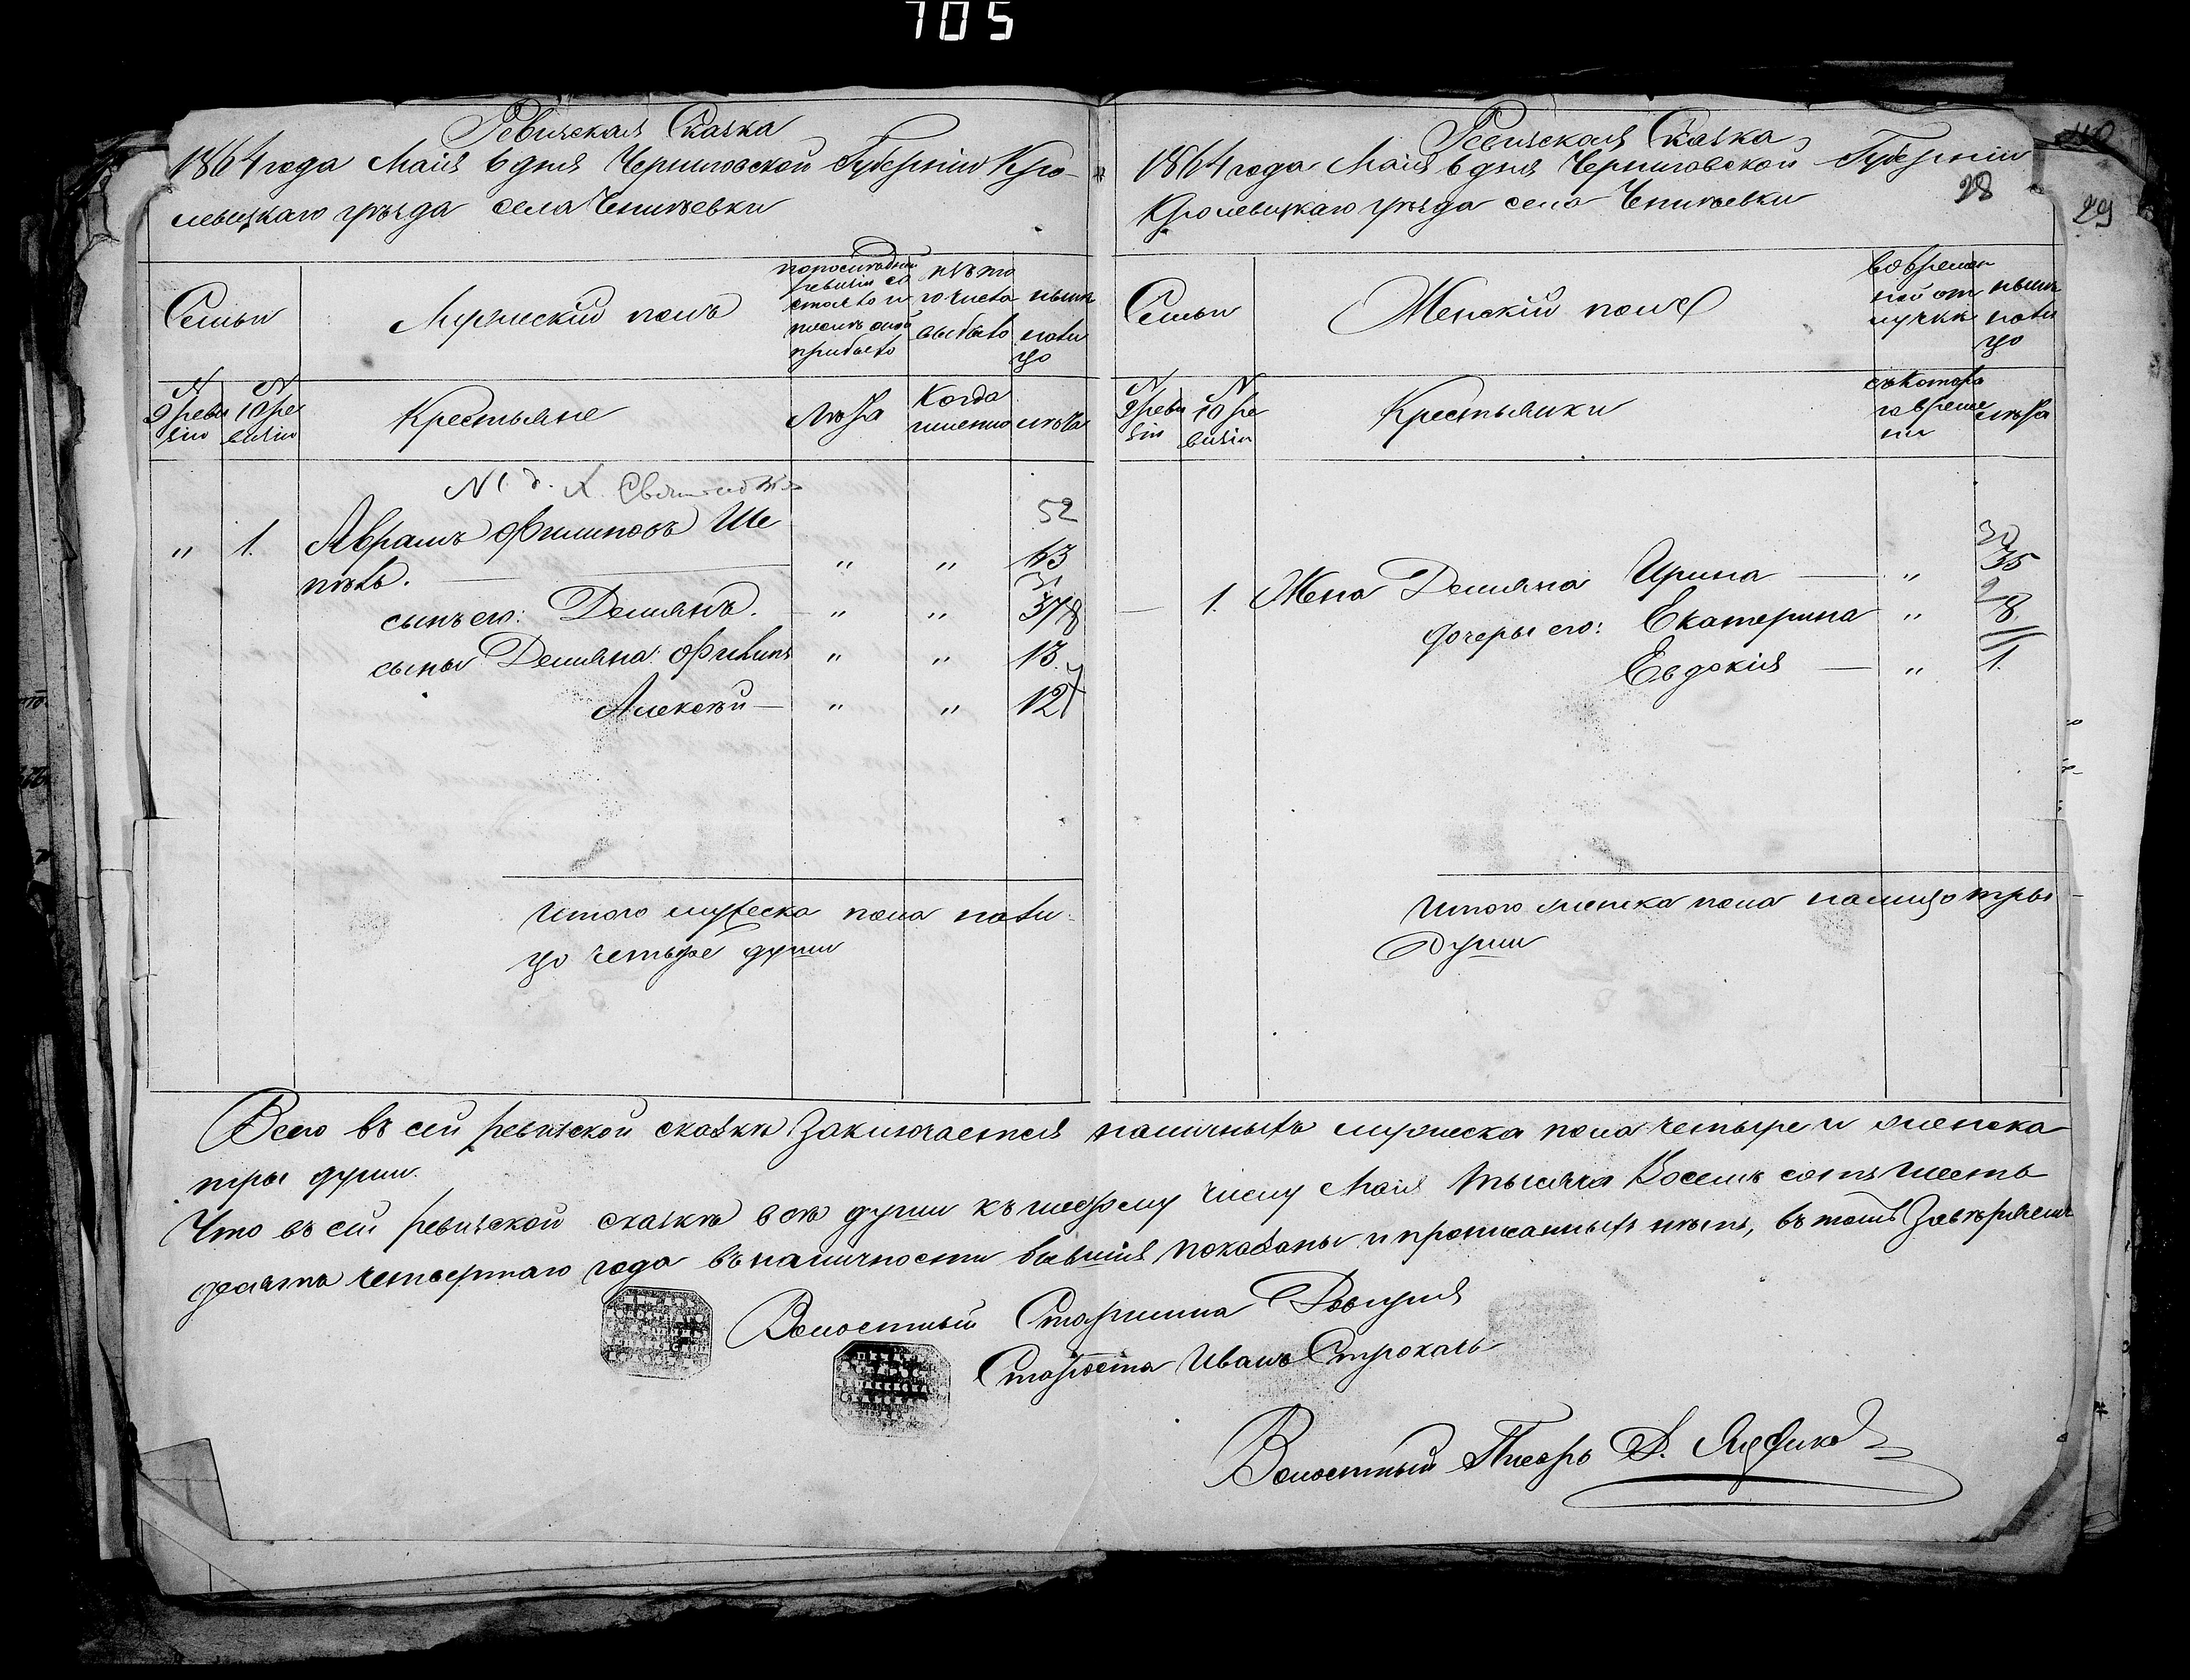 705
Ревизская Сказка
1864 года Маія 6 дня Черниговской Губерніи Кро-
левецкаго уѣзда села Чепиѣевки
Семьи
Мужескій полъ
по послѣдней
ревизіи со
стояло и
послѣ оной
прибыло
изъ то
го числа
выбыло
нынѣ
нали
цо
№
9 реви
зіи
№
10 ре
визіи
Крестьяне
Лѣта
Когда
именно
лѣта
52
" 1. Аврамъ Филиповъ Ше " " 63
пѣль.
сынъ его: Демянъ. " " 37
сыны Демяна: Филипъ " " 13
Алексѣй " " 12
Итого мужеска пола нали-
цо четыре души
Ревизская Сказка
1864 года Маія 6 дня Черниговской Губерніи
Кролевецкаго уѣзда села Чепиѣевки
28
29
Семьи
Женскій полъ
во времен
ной от
лучкѣ
нынѣ
нали
цо
№
9 реви
зіи
№
10 ре
визіи
Крестьянки
съ котора
го време
ни
лѣта
1. Жена Демяна Ирина " 35
дочеры его: Екатерина " 8
Евдокія " 1.
Итого женска пола налицо тры
души
Всего въ сей ревизской сказкѣ заключается наличныхъ мужеска пола четыре и женска
тры души.
Что въ сей ревизской сказкѣ всѣ души къ шестому числу Маія тысяча восемь сотъ шесть
десятъ четвертаго года въ наличности бывшія показаны и прописанныхъ нѣтъ, въ томъ завѣряемъ
Волостный Старшина
Староста Иванъ Строкаль
Волостный Писарь